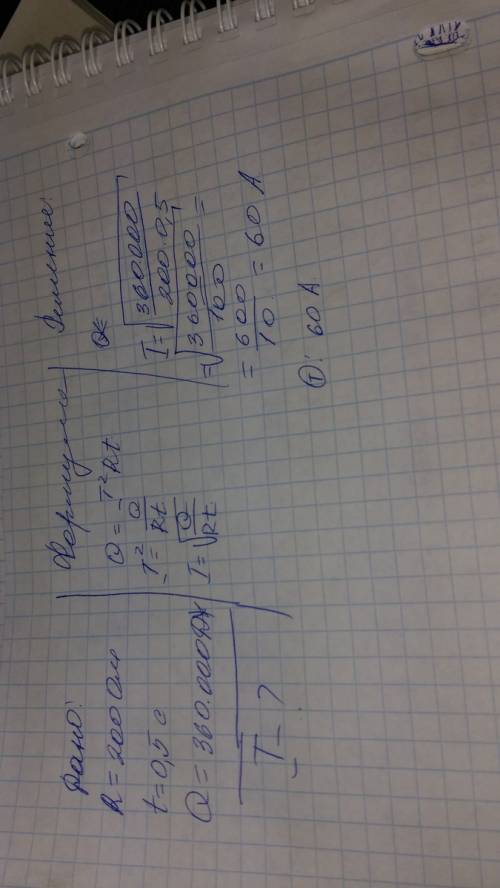 Дано:
R = 200 Ом
t = 0,5 с
Q = 360.000 Дж
I - ?
Формула
Q = I²Rt
I² = Q/Rt
I = √Q/Rt
Решение:
I = √360000/200·0,5
= √360000/100 =
= 600/10 = 60 А
О: 60 А